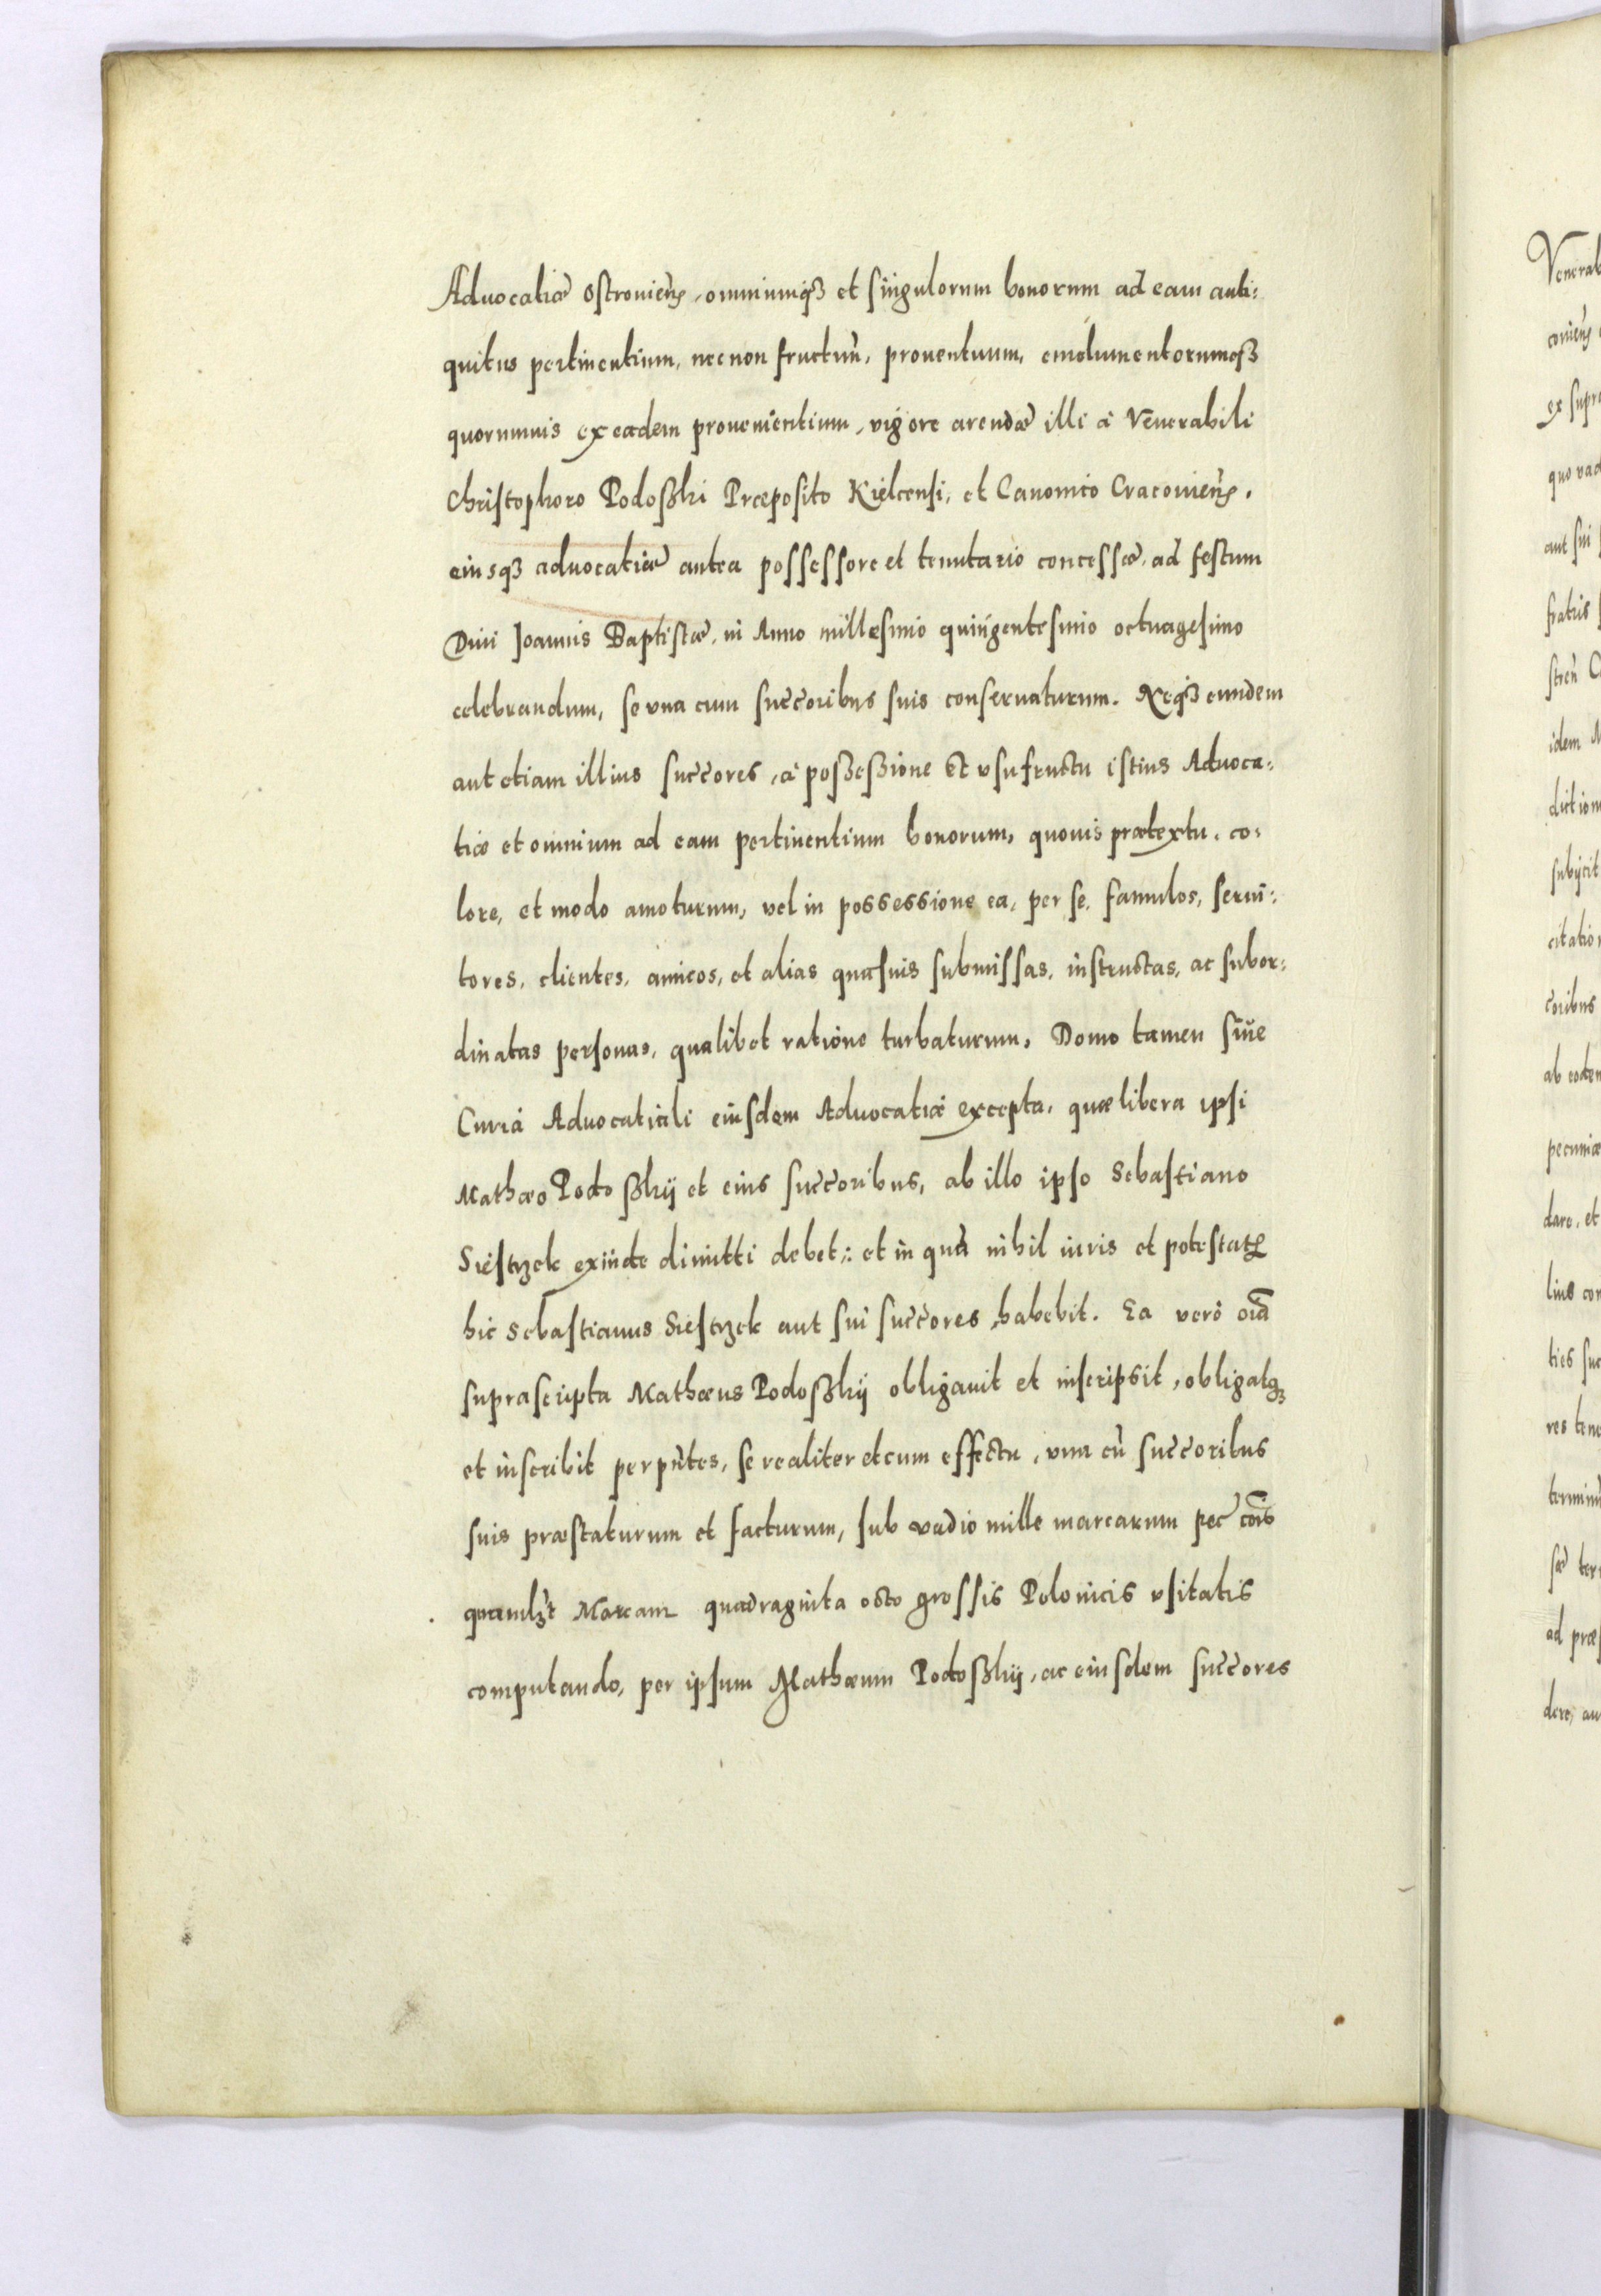 Advocatiæ Ostroviens̃, omniumq́ꝫ et singulorum bonorum ad eam anti:
quitus pertinentium, necnon fructuũ, prouentuum, emolumentorumqꝫ
quorumuis ex eadem prouenientium, vigore arendæ illi à Venerabili
Christophoro Podoßki Præposito Kielcensi, et Canonico Cracouiens̃.
eiusqꝫ aduocatiæ antea possessore et tenutario concessæ, ad festum
Diui Joannis Baptistæ, in Anno millesimo quingentesimo octuagesimo
celebrandum, se vna cum succ̃oribus suis conseruaturum. Neqꝫ eundem
aut etiam illius succ̃ores, à poßeßione et vsufructu istius Aduoca:
tiæ et omnium ad eam pertinentium bonorum, quouis prætextu, co:
lore, et modo amoturum, vel in possessione ea, per se, famulos, serui:
tores, clientes, amicos, et alias quasuis submissas, instructas, ac subor:
dinatas personas, qualibet ratione turbaturum, Domo tamen siue
Curia Aduocatiali eiusdem Aduocatiæ excepta, quæ libera ipsi
Mathæo Podoßkij et eius succ̃oribus, ab illo ipso Sebastiano
Siestrzek exinde dimitti debet: et in qua nihil iuris et potestatꝭ
hic Sebastianus Siestrzek aut sui succ̃ores habebit. Ea verò oĩa
suprascripta Mathæus Podoßkij obligauit et inscripsit, obligatqꝫ
et inscribit per pñtes, se realiter et cum effectu, vna cũ succ̃oribus
suis præstaturum et facturum, sub vadio mille marcarum pec̃ cõis
quamlꝫt Marcam quadraginta octo grossis Polonicis vsitatis
computando, per ipsum Mathæum Podoßkij, ac eiusdem succ̃ores
Venerab
ex supr
quo vad
aut sui
fratris
idem
diction
subijcit
citation
c̃oribus
ab eodem
pecuniæ
dare, et
lius con
ties suc
res tene
terminũ
ad præs
dere, au